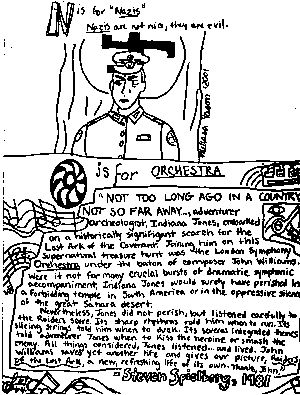 N is for "Nazis"
Nazis are not nice, they are evil.
2001
O is for ORCHESTRA
"NOT TOO LONG AGO IN A COUNTRY
NOT SO FAR AWAY... adventurer
archeologist, Indiana Jones, embarked
on a historically significant search for the
Lost Ark of the Covenant. Joining him on this
supernatural treasure hunt was "The London Symphony
Orchestra under the baton of composer John Williams.
Were it not for many crucial bursts of dramatic symphonic
accompaniment, Indiana Jones would surely have perished in
a forbidden temple in South America or in the oppressive silence
of the great Sahara desert.
Nevertheless, Jones did not perish, but listened carefully to
the Raiders score. Its sharp rhythms told him when to run. Its
slicing strings told him when to duck. Its several integrated themes
told adventurer Jones when to kiss the heroine or smash the
enemy. All things considered, Jones listened... and lived. John
Williams saved yet another life and gives our picture, Raiders
of the Lost Ark, a new, refreshing life of its own. Thank, John."
- Steven Spielberg, 1981